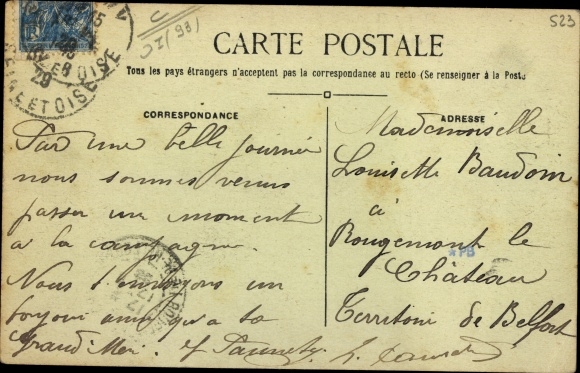 523
CARTE POSTALE
Tous les pays étrangers n'acceptent pas la correspondance au recto (Se renseigner à la Poste
CORRESPONDANCE
Par une belle journée
nous sommes venus
passer un moment
a la campagne.
Nous t'envoyons un
ainsi qu'a ta
Grand'Mère.
ADRESSE
Mademoiselle
Louisette Baudoin
à
Rougemont le
Château
Territoire de Belfort
SEINE ET OISE